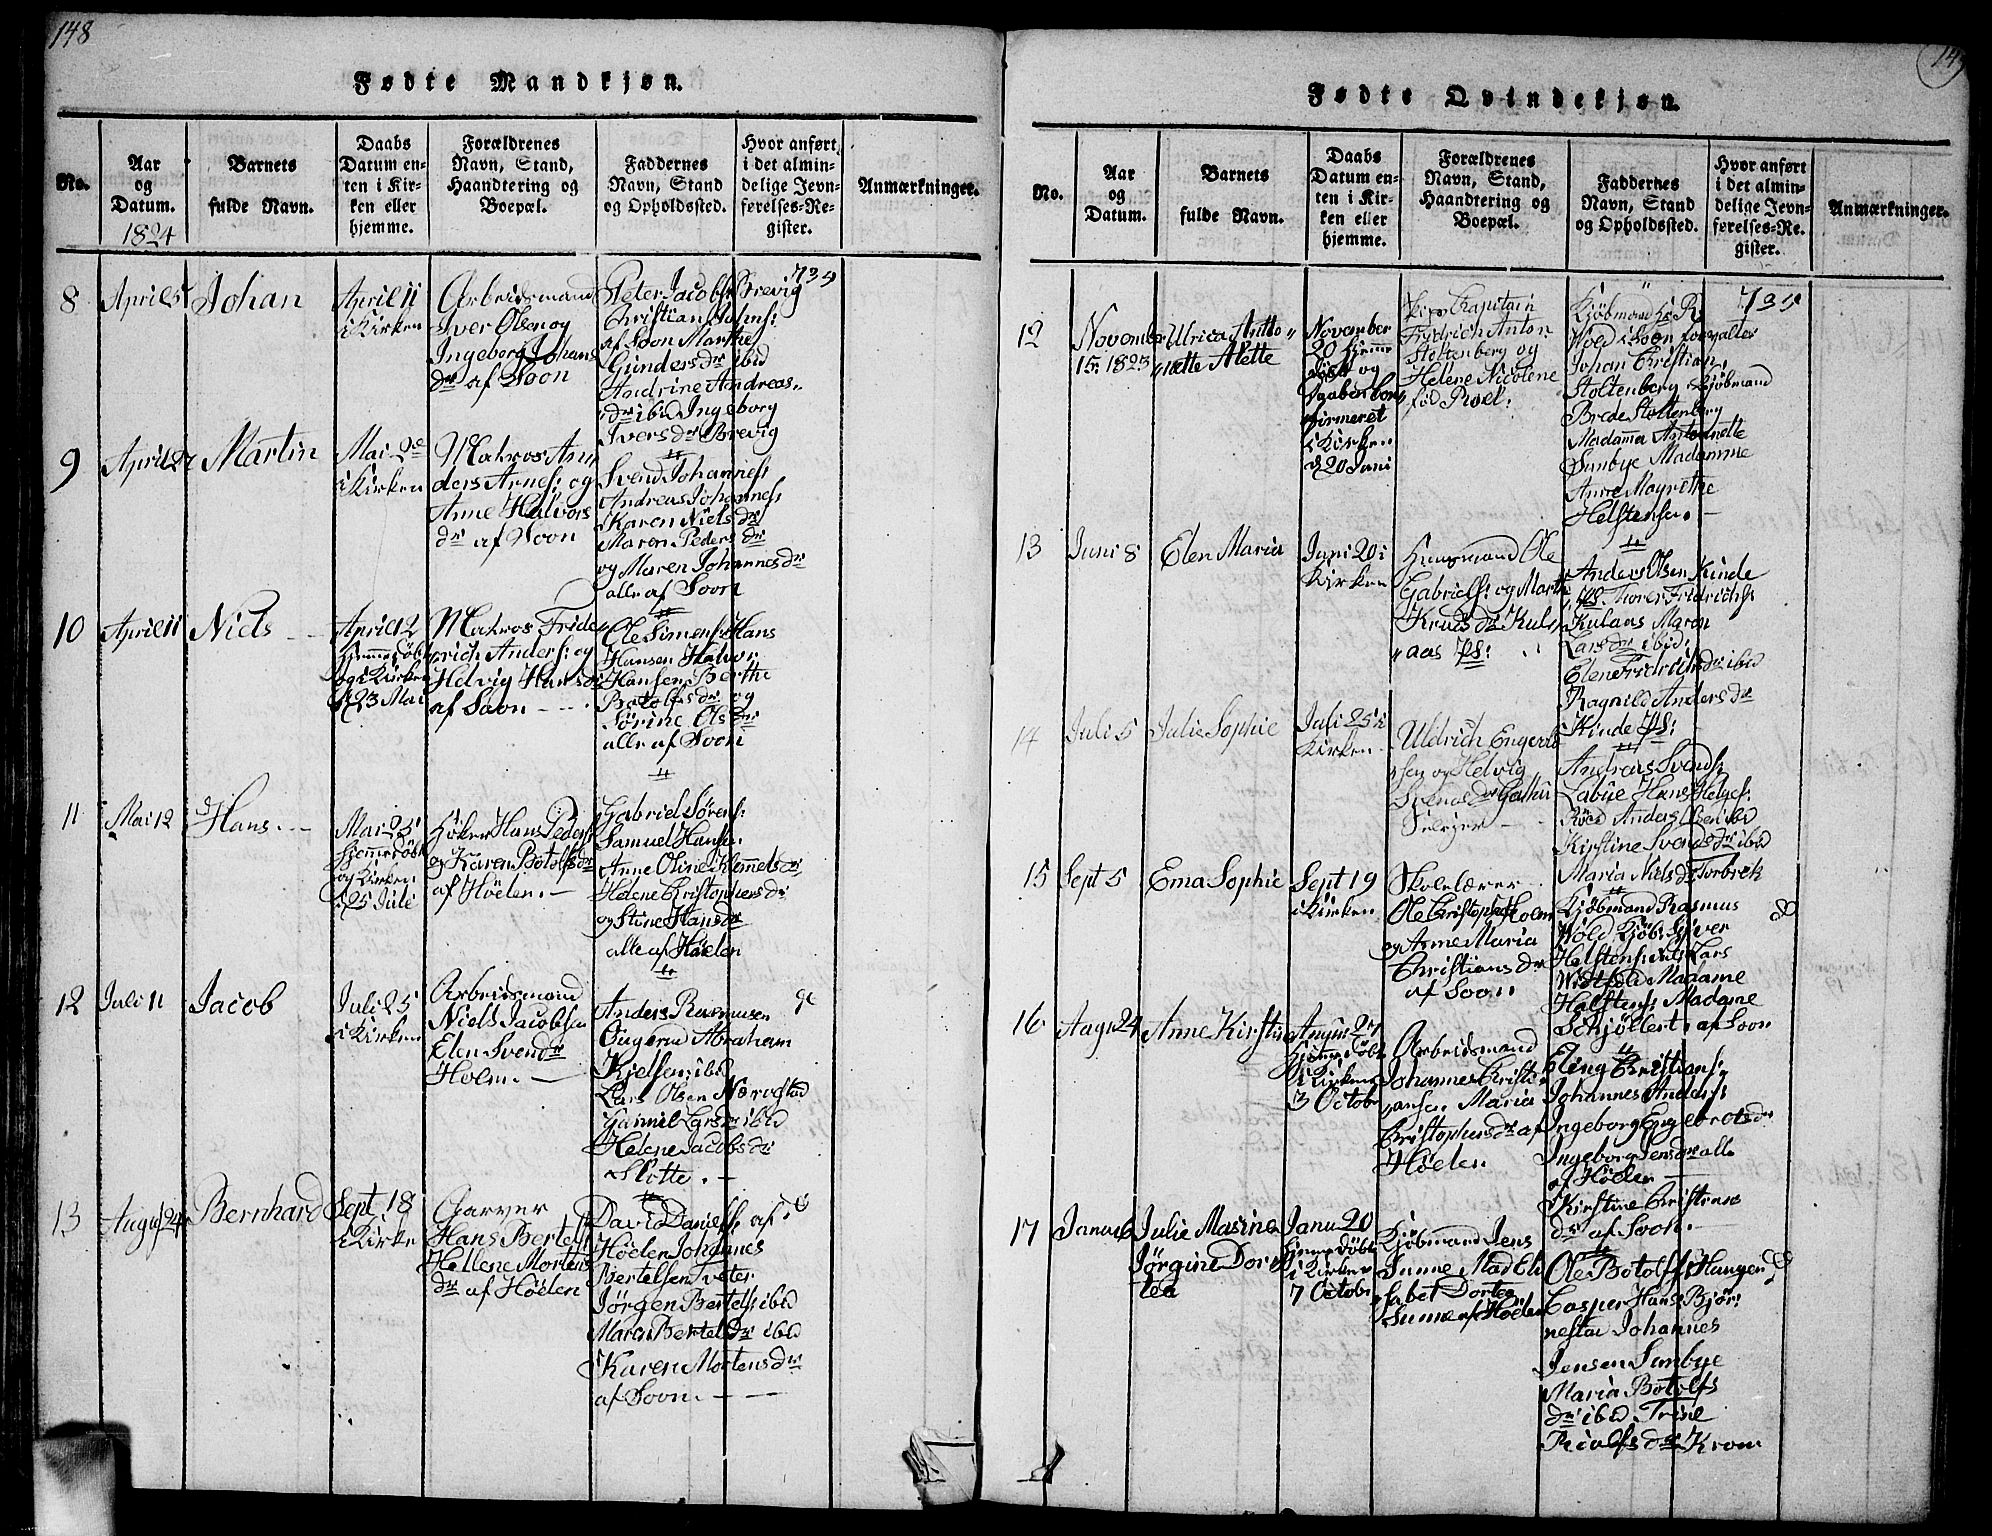 148
Fødte Mandkjøn.
No.
Aar
og
Datum.
1824
Barnets
fulde Navn.
Daabs
Datum en-
ten i Kir-
ken eller
hjemme.
Forældrenes
Navn, Stand,
Haandtering og
Boepæl.
Faddernes
Navn, Stand
og Opholdssted.
Hvor anført
i det almin-
delige Jevn-
førelses-Re-
gister.
Anmærkninger.
8
April 5
Johan
April 11
i Kirken
Arbeidsmand
Iver Olsen og
Ingeborg Johans
dr af Soon
Peter Jacobs: Brevig
Christian Johns:
af Soon Marthe
Gundersdr ibid
Andrine Andreas
dr ibid Ingeborg
Iversdr Brevig
739
9
April 27
Martin
Mai 2
i Kirken
Matros An,
ders Arnes: og
Anne Halvors
dr af Soon
Svend Johannes:
Andreas Johannes:
Karen Nielsdr
Maren Pedersdr
og Maren Johannesdr
alle af Soon
10
April 11
Niels
April 12
hjemmedøbt
og i Kirken
d 23 Mai
Matros Fride
rich Anders: og
Helvig Hansdr
af Soon
Ole Simens: Hans
Hansen Halvor
Hansen Berthe
Botolfsdr og
Sørine Olsdr
alle af Soon
11
Mai 12
Hans
Mai 25
hjemmedøbt
og i Kirken
d 25 Juli
Høker Hans Peders:
og Karen Botolfsdr
af Høelen.
Gabriel Sørens:
Samuel Hansen
Anne Oline Klemmetsdr
Helene Christophersdr
og Stine Hansdr
alle af Høelen
12
Juli 11
Jacob
Juli 25
i Kirken
Arbeidsmand
Niels Jacobsen
Elen Svendsdr
Holm.
Anders Rasmusen
Abraham
Kielsen ibid
Lars Olsen
Larsdr ibid
Helene Jacobsdr
Slotte.
13
August 24
Bernhard
Sept 18
i Kirke
Garver
Hans Bertels
Hellene Mortens
dr af Høelen
David Daniels: af
Høelen Johannes
Bertelsen Tveter
Jørgen Bertels: ibid
Maren Bertelsdr ibid
Karen Mortensdr
af Soon.
149
Fødte Qvindekjøn.
No.
Aar
og
Datum.
Barnets
fulde Navn.
Daabs
Datum en-
ten i Kir-
ken eller
hjemme.
Forældrenes
Navn, Stand,
Haandtering og
Boepæl.
Faddernes
Navn, Stand
og Opholdssted.
Hvor anført
i det almin-
delige Jevn-
førelses-Re-
gister.
Anmærkninger.
12
November
15: 1823
Ulrica Anto
nette Alette
November
20 hjemme
døbt og
Daaben
firmeret
i Kirken
d 20 Juni
Capitain
Fridrich Anton
Stoltenberg og
Helene Nicolene
fød Roel:
Kjøbmand Hr R.
Wold i Soon
Johan Christian
Stoltenberg Kjøbmand
Brede Stoltenberg
Madamme Antonnette
Sunbye Madamme
Anne Magrethe
Helstensen.
739
13
Juni 8
Elen Maria
Juni 20 i
Kirken
Huusmand Ole
Gabriels: og Marthe
Knudsdr Kul
aas Ps:
Anders Olsen Kinde
Ps. Torer Fridrichs:
Kulaas Maren
Larsdr ibid
Elen Fridrichsdr ibid
Ragnild Andersdr
Kinde Ps:
14
Juli 5
Julie Sophie
Juli 25 i
Kirken
Uldrich Engebl
sen og Helvig
Svendsdr
Andreas Svends:
Labye Hans Helges:
Anders Olsen ibid
Kirstine Svendsdr ibid
Maria Nielsdr Torbrek
15
Sept 5
Ema Sophie
Sept 19
i Kirken
Skolelærer
Ole Christophs: Holm
og Anne Maria
Christiansdr
af Soon
Kjøbmand Rasmus
Wold Kjøb: Syver
Helstens: Lars
Madame
Halstens Madame
Schjøllert. af Soon
do
16
Augu 24
Anne Kirstin
Augus 27
hjemmedøbt
i Kirken
3 Octobr
Arbeidsmand
Johannes Christi
ansen Maria
Christophersdr af
Høelen
Eling Christians:
Johannes Anders:
Ingeborg Engebretsdr
Ingeborg Jensdr alle
af Høelen
Kirstine Christens
dr af Soon.
17
Janu 6
Julie Masine
Jørgine Doro
tea
Janu 20
hjemmedøbt
i Kirken
7 Octobr
Kjøbmand Jens
Sunne Mad Eli
sabet Dortea
Sunne af Høelen
Ole Botolfs: Haugen
Casper Hans: Bjør
nestad Johannes
Jensen Sunbye
Maria Botolfs
dr ibid. Trine
Riolfsdr Krom
do